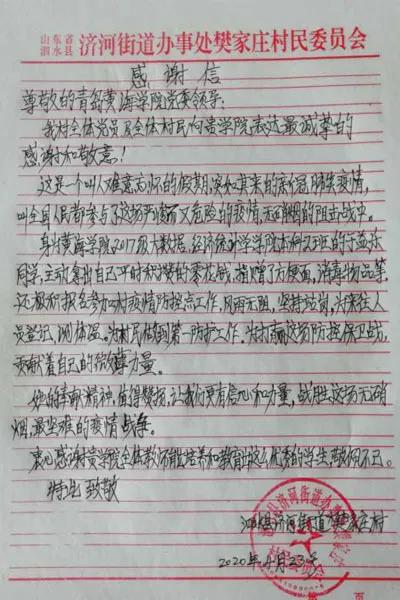 山东省泗水县 济河街道办事处樊家庄村民委员会
感谢信
尊敬的青岛黄海学院党委领导:
我村全体党员及全体村民向贵学院表达最诚挚的
感谢和敬意!
这是一个叫人难意忘怀的假期,突如其来的新冠肺炎疫情,
叫全国人民都参与了这场严峻而又危险的疫情,无硝烟的阻击战中。
身为黄海学院2017级大数据,经济统计学学院本科2班的
同学,主动拿出自己平时积攒的零花钱,捐赠了方便面,消毒物品等,
还积极报名参加村疫情防控点工作,风雨无阻,坚持站岗,为来往人
员登记,测体温。为村民做到第一防护工作。为打赢这场防控保卫战,
贡献着自己的微薄力量。
她的奉献精神,值得赞扬,让我们更有信心和力量,战胜这场无硝
烟,最坚难的疫情战争。
衷心感谢贵学院全体教师能培养和教育出这么优秀的学生,敬佩不已。
特此致敬
泗水县济河街道樊家庄村
2020年4月23号
页